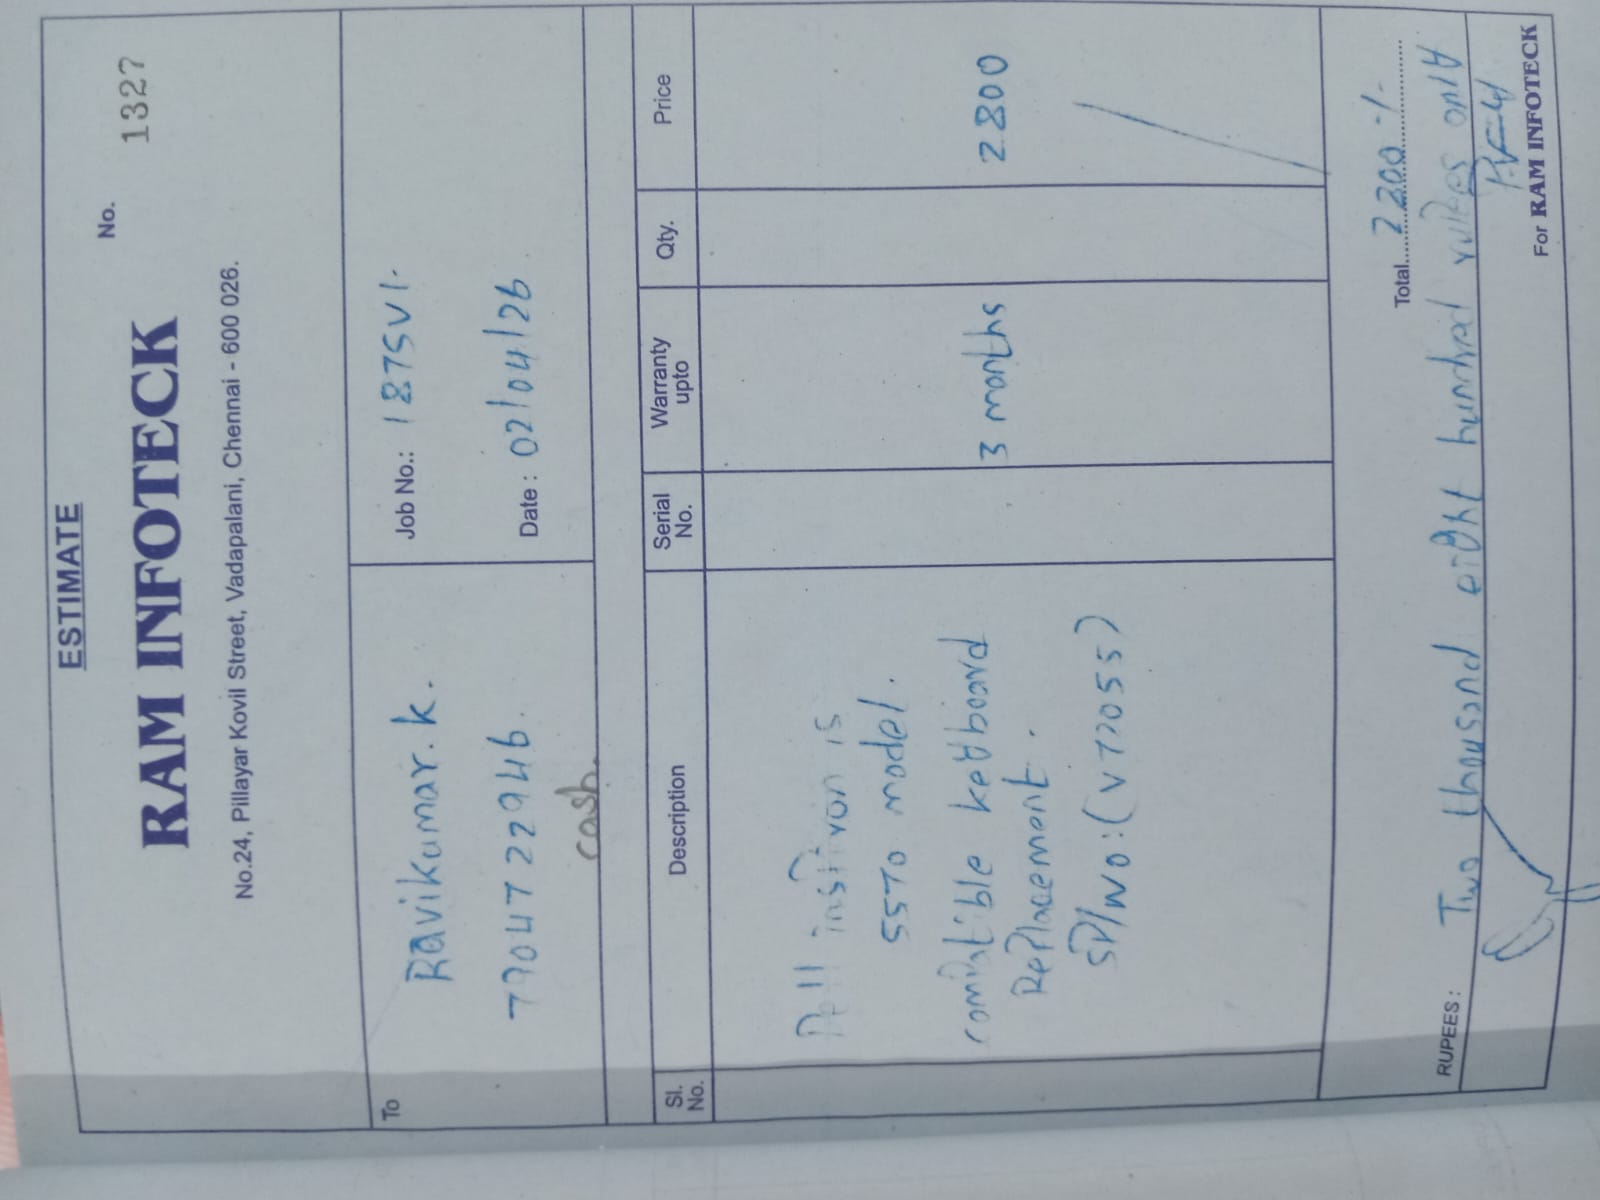 ESTIMATE
RAM INFOTECK
No. 1327
No.24, Pillayar Kovil Street, Vadapalani, Chennai - 600 026.
To
Ravikumar.k.
7904722946.
cash.
Job No.: 1875V1.
Date : 02/04/26
Sl. No.
Description
Serial No.
Warranty upto
Qty.
Price
Dell inspiron 15
5570 model.
compatible keyboard
Replacement.
SP/NO:(V72055)
3 months
2800
Total 2800/-
RUPEES : Two thousand eight hundred rupees only
For RAM INFOTECK